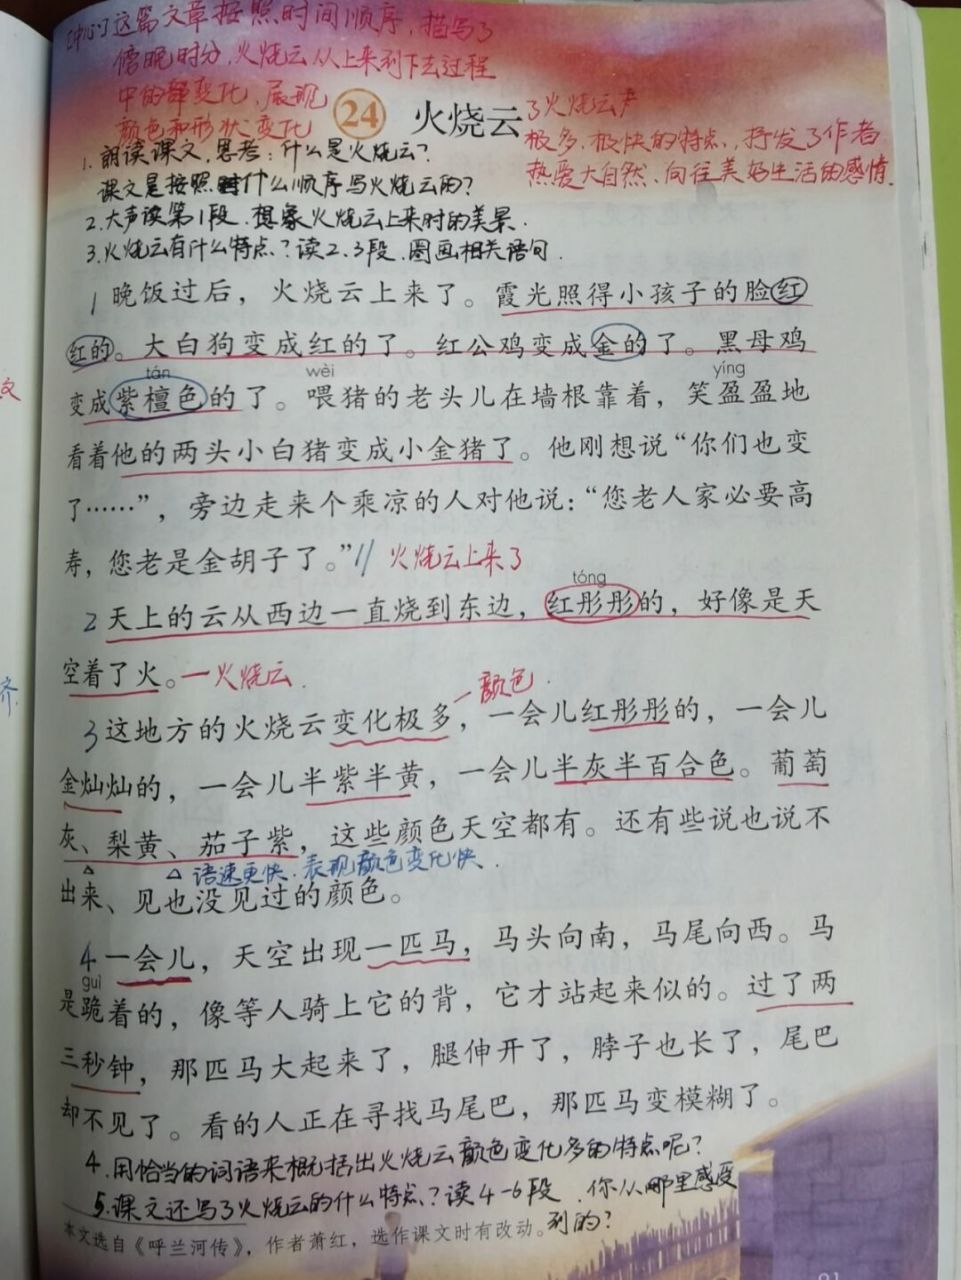 [中心]这篇文章按照时间顺序,描写了
傍晚时分,火烧云从上来到下去过程
中的变化,展现
了火烧云
颜色和形状变化
极多、极快的特点,抒发了作者
热爱大自然、向往美好生活的感情.
24 火烧云
1. 朗读课文,思考:什么是火烧云?
课文是按照什么顺序写火烧云的?
2.大声读第1段.想象火烧云上来时的美景.
3.火烧云有什么特点?读2.3段.圈画相关语句.
1 晚饭过后,火烧云上来了。霞光照得小孩子的脸红
红的。大白狗变成红的了。红公鸡变成金的了。黑母鸡
tán wèi yíng
变成紫檀色的了。喂猪的老头儿在墙根靠着,笑盈盈地
看着他的两头小白猪变成小金猪了。他刚想说“你们也变
了……”,旁边走来个乘凉的人对他说:“您老人家必要高
寿,您老是金胡子了。”// 火烧云上来了
tóng
2 天上的云从西边一直烧到东边,红彤彤的,好像是天
空着了火。一火烧云.
一颜色.
3 这地方的火烧云变化极多,一会儿红彤彤的,一会儿
金灿灿的,一会儿半紫半黄,一会儿半灰半百合色。葡萄
灰、梨黄、茄子紫,这些颜色天空都有。还有些说也说不
△ △ 语速更快.表现颜色变化快.
出来、见也没见过的颜色。
4 一会儿,天空出现一匹马,马头向南,马尾向西。马
guì
是跪着的,像等人骑上它的背,它才站起来似的。过了两
三秒钟,那匹马大起来了,腿伸开了,脖子也长了,尾巴
却不见了。看的人正在寻找马尾巴,那匹马变模糊了。
4.用恰当的词语来概括出火烧云颜色变化多的特点呢?
5.课文还写了火烧云的什么特点?读4-6段.你从哪里感受
到的?
本文选自《呼兰河传》,作者萧红,选作课文时有改动。